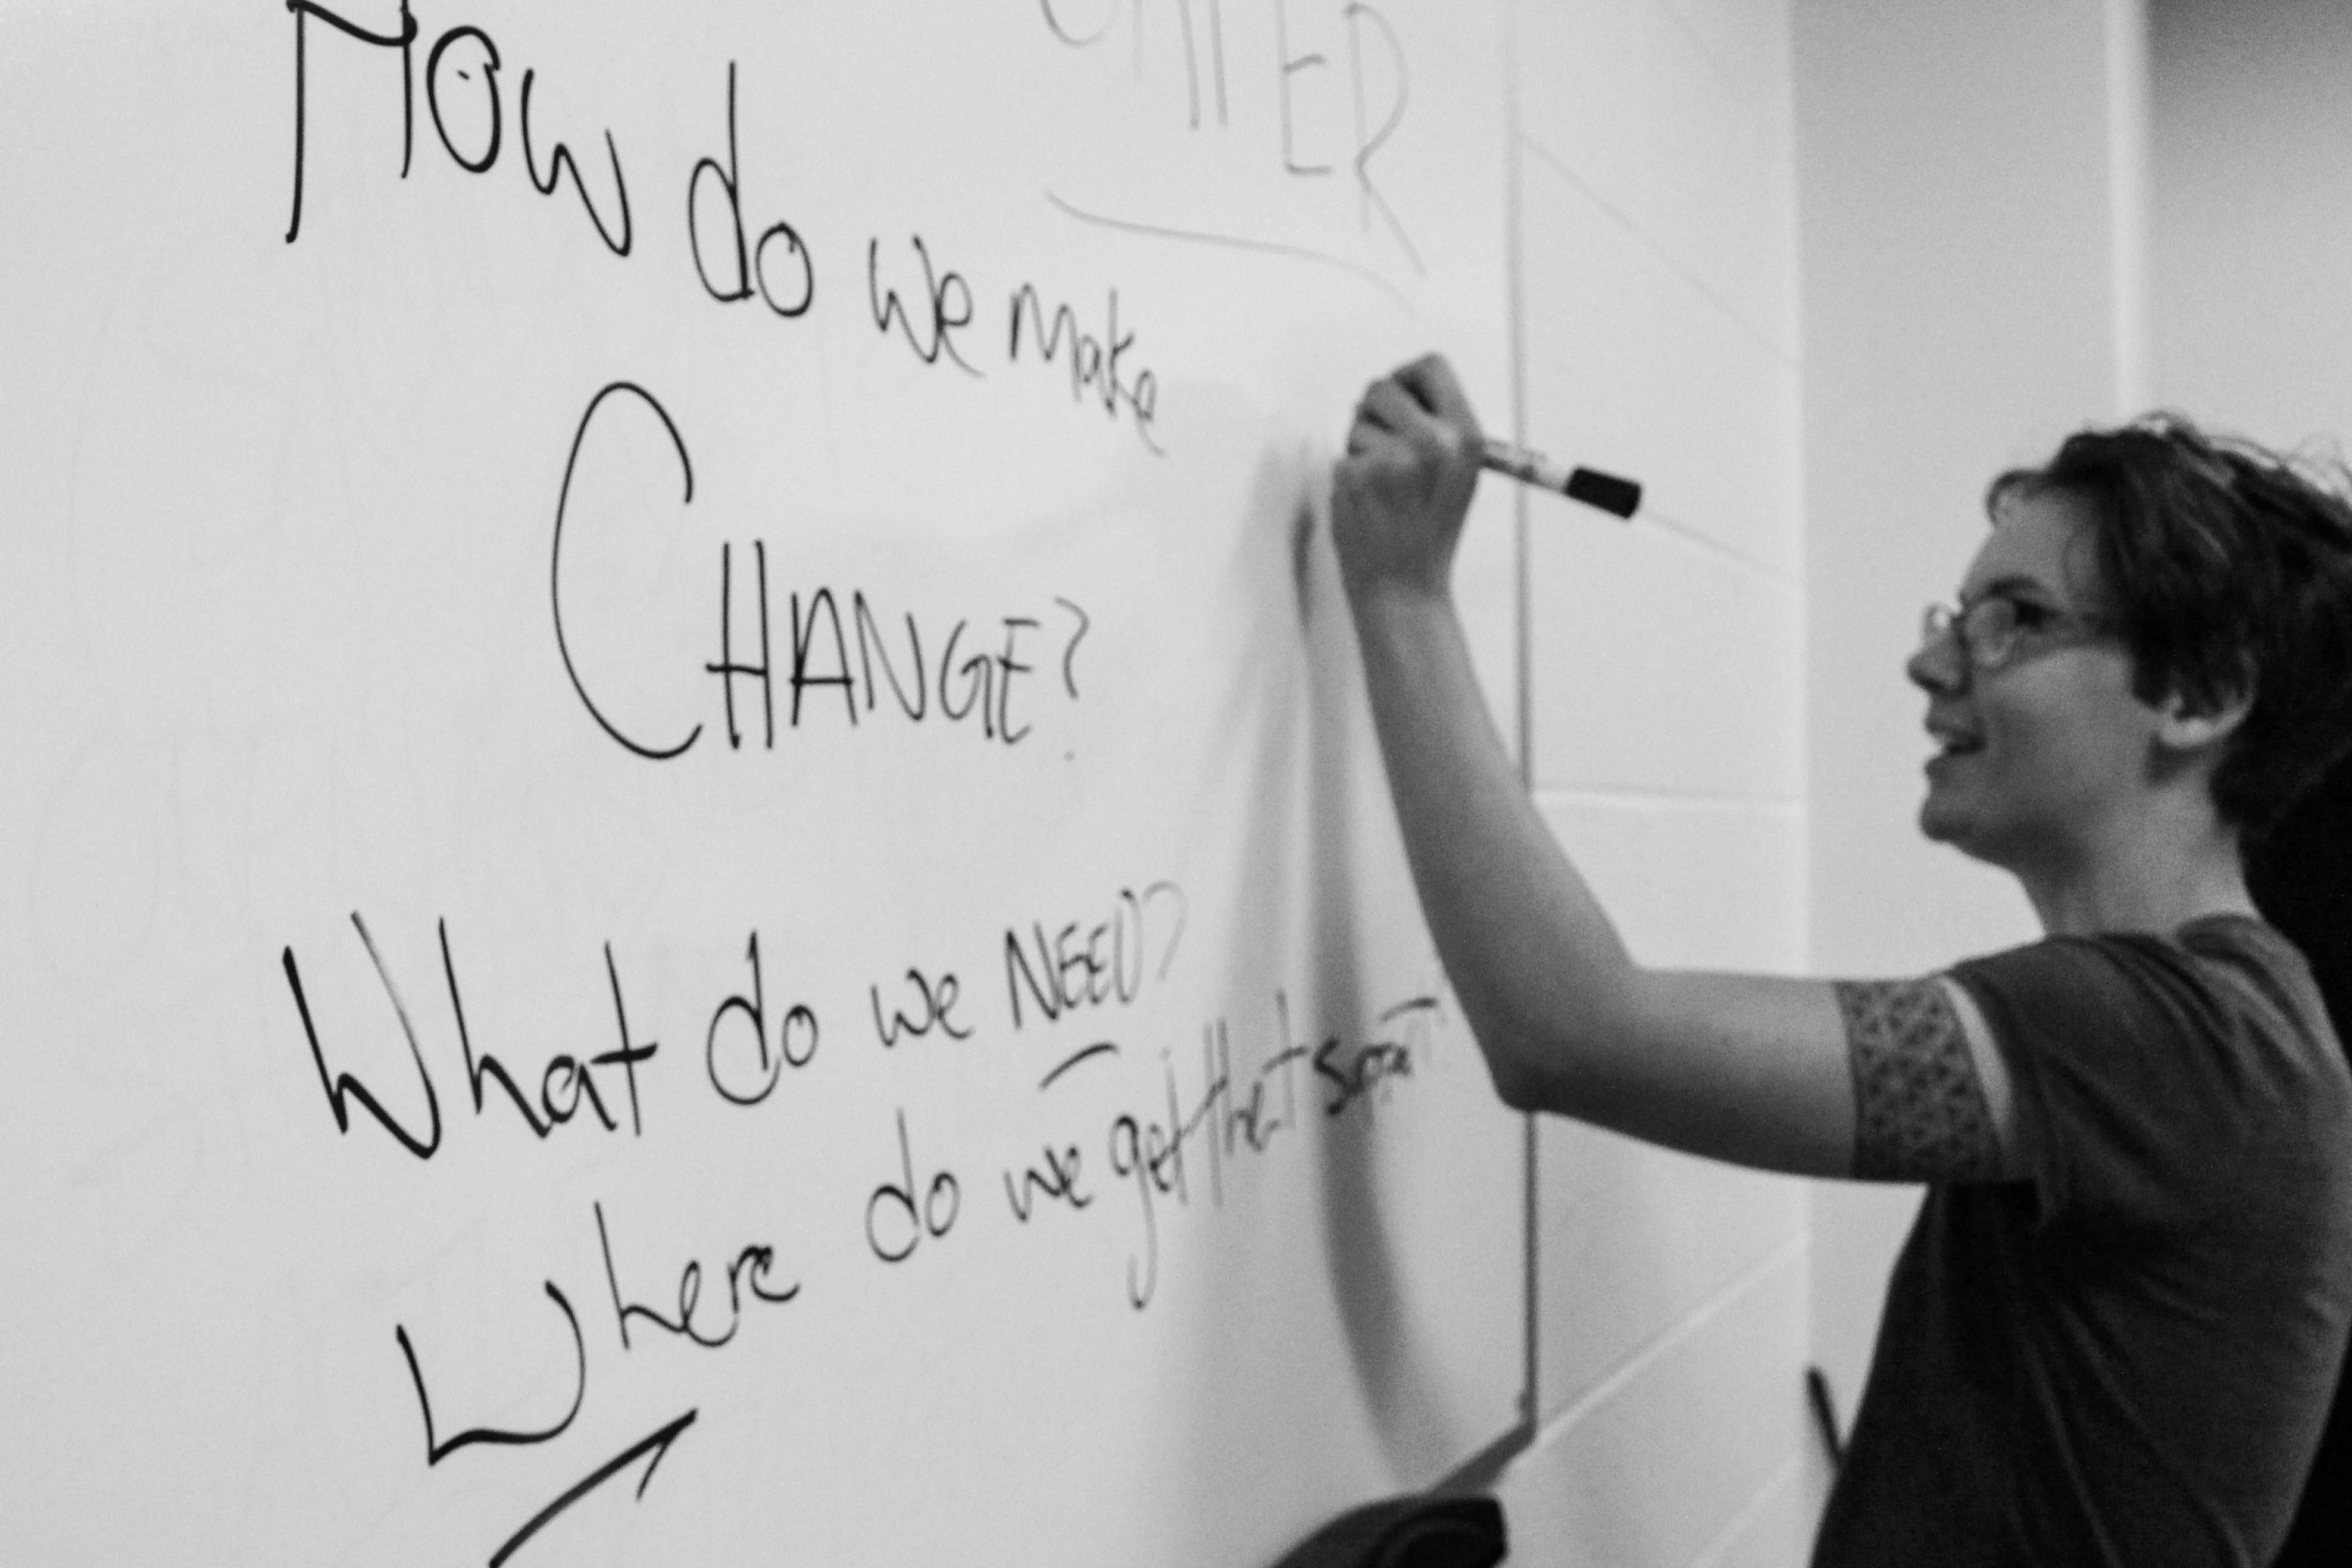 How do we make
CHANGE?
What do we NEED?
Where do we get that